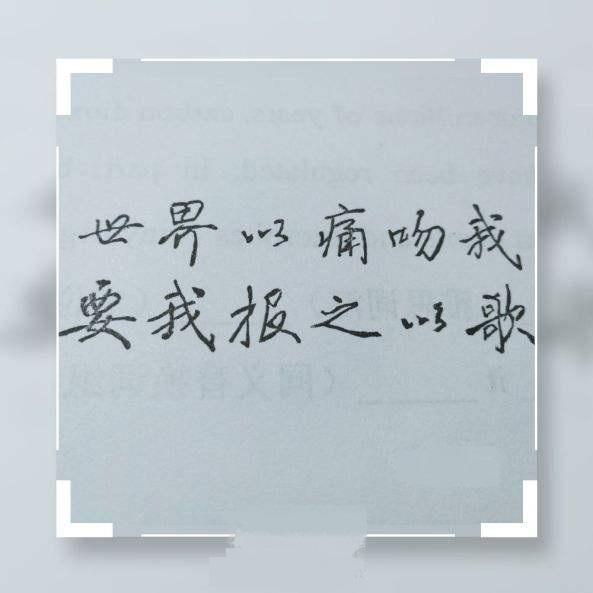 世界以痛吻我
要我报之以歌